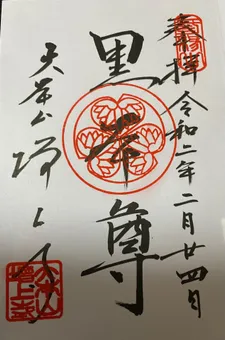 奉拝 令和二年二月廿四日
黒本尊
大本山 増上寺